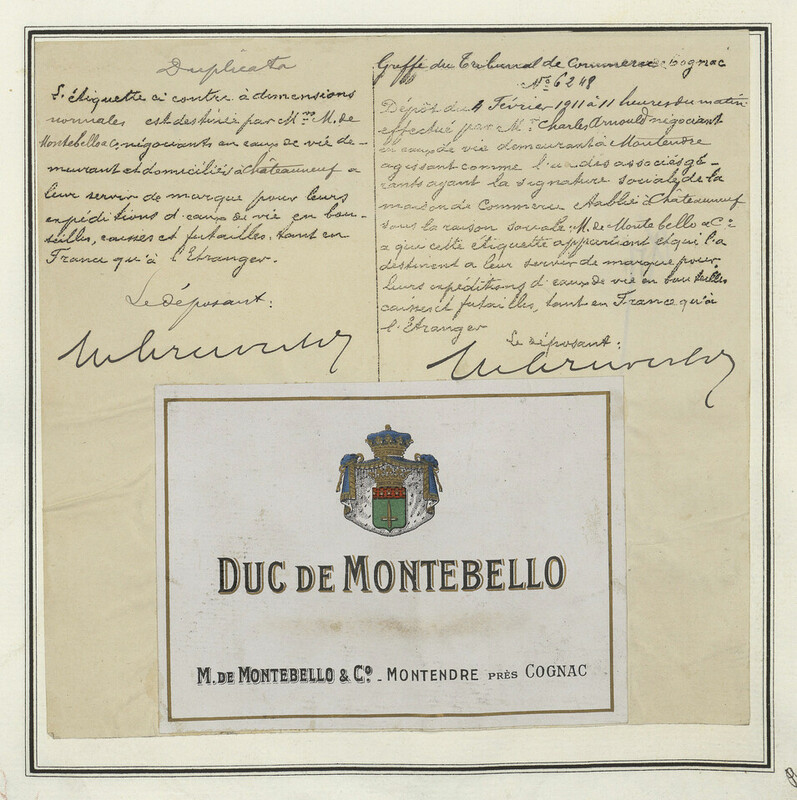 Duplicata
L'étiquette ci contre à dimensions
normales est destinée par Mrs M. de
Montebello & Co négociants en eaux de vie de-
meurant et domiciliés à Châteauneuf a
leur servir de marque pour leurs
expéditions d'eaux de vie en bou-
teilles, caisses et futailles, tant en
France qu'à l'Etranger.
Le déposant:
Greffe du Tribunal de Commerce Cognac
No 6248
Dépôt du 4 Février 1911 à 11 heures du matin
effectué par Mr Charles Arnould négociant
en eaux de vie demeurant à Montendre
agissant comme l'un des associés gé-
rants ayant la signature sociale de la
maison de Commerce établie à Châteauneuf
sous la raison sociale: M. de Montebello & Co
a que cette étiquette appartient et qu'il la
destinent a leur servir de marque pour
leurs expéditions d'eaux de vie en bouteilles
caisses et futailles, tant en France qu'à
l'Etranger
Le déposant:
DUC DE MONTEBELLO
M. DE MONTEBELLO & Co - MONTENDRE PRÈS COGNAC